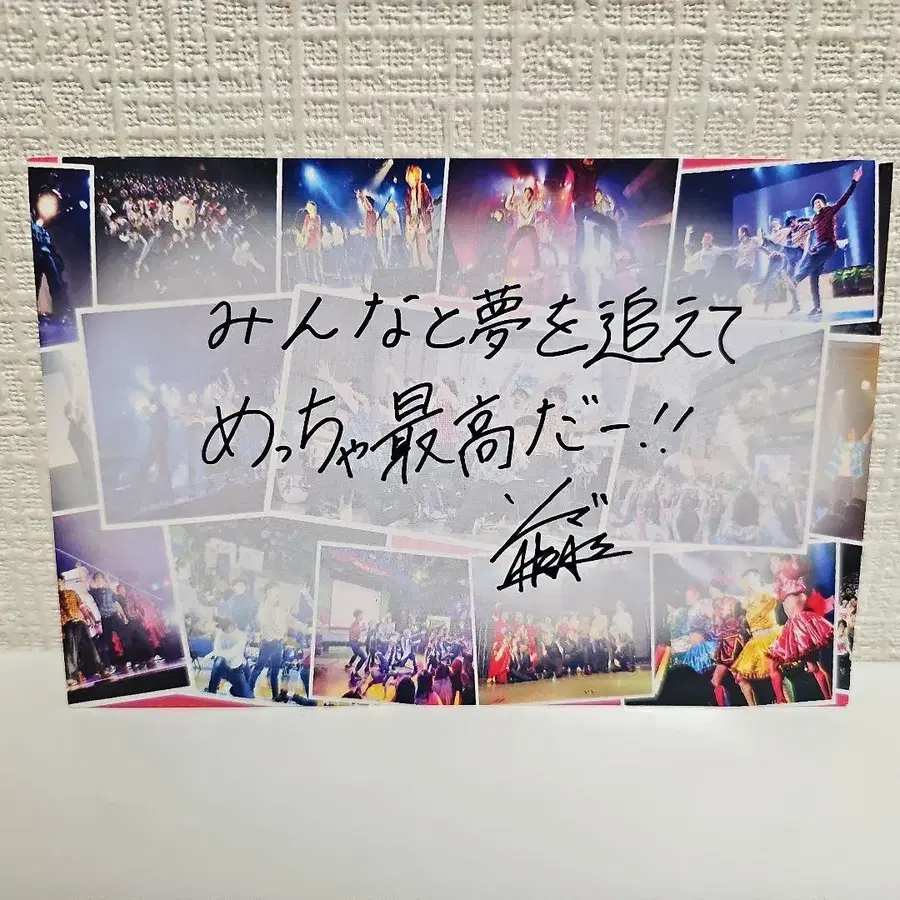 みんなと夢を追えて
めっちゃ最高だー!!